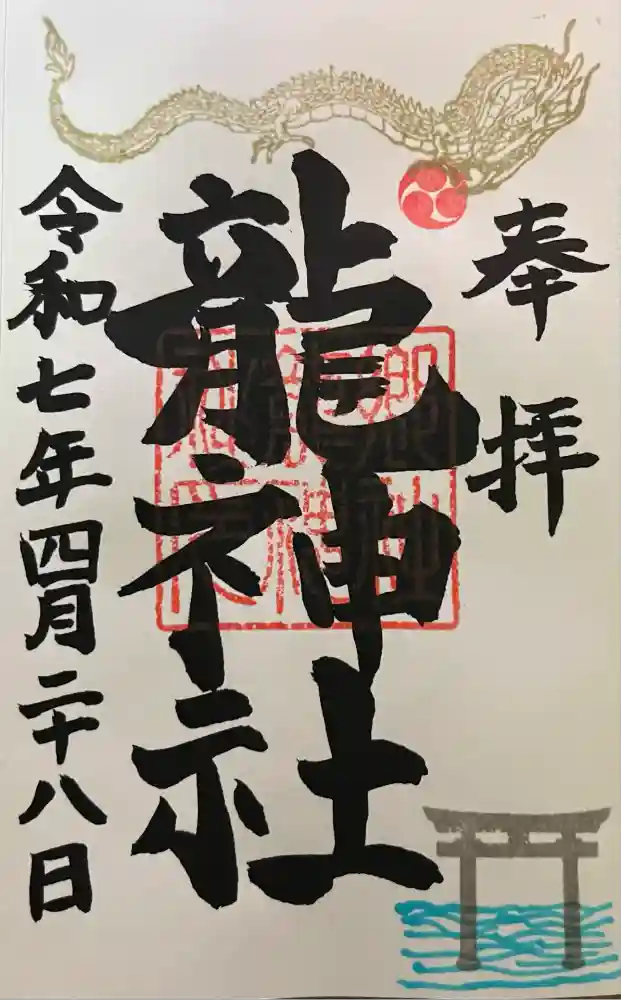 奉拝
龍神社
令和七年四月二十八日